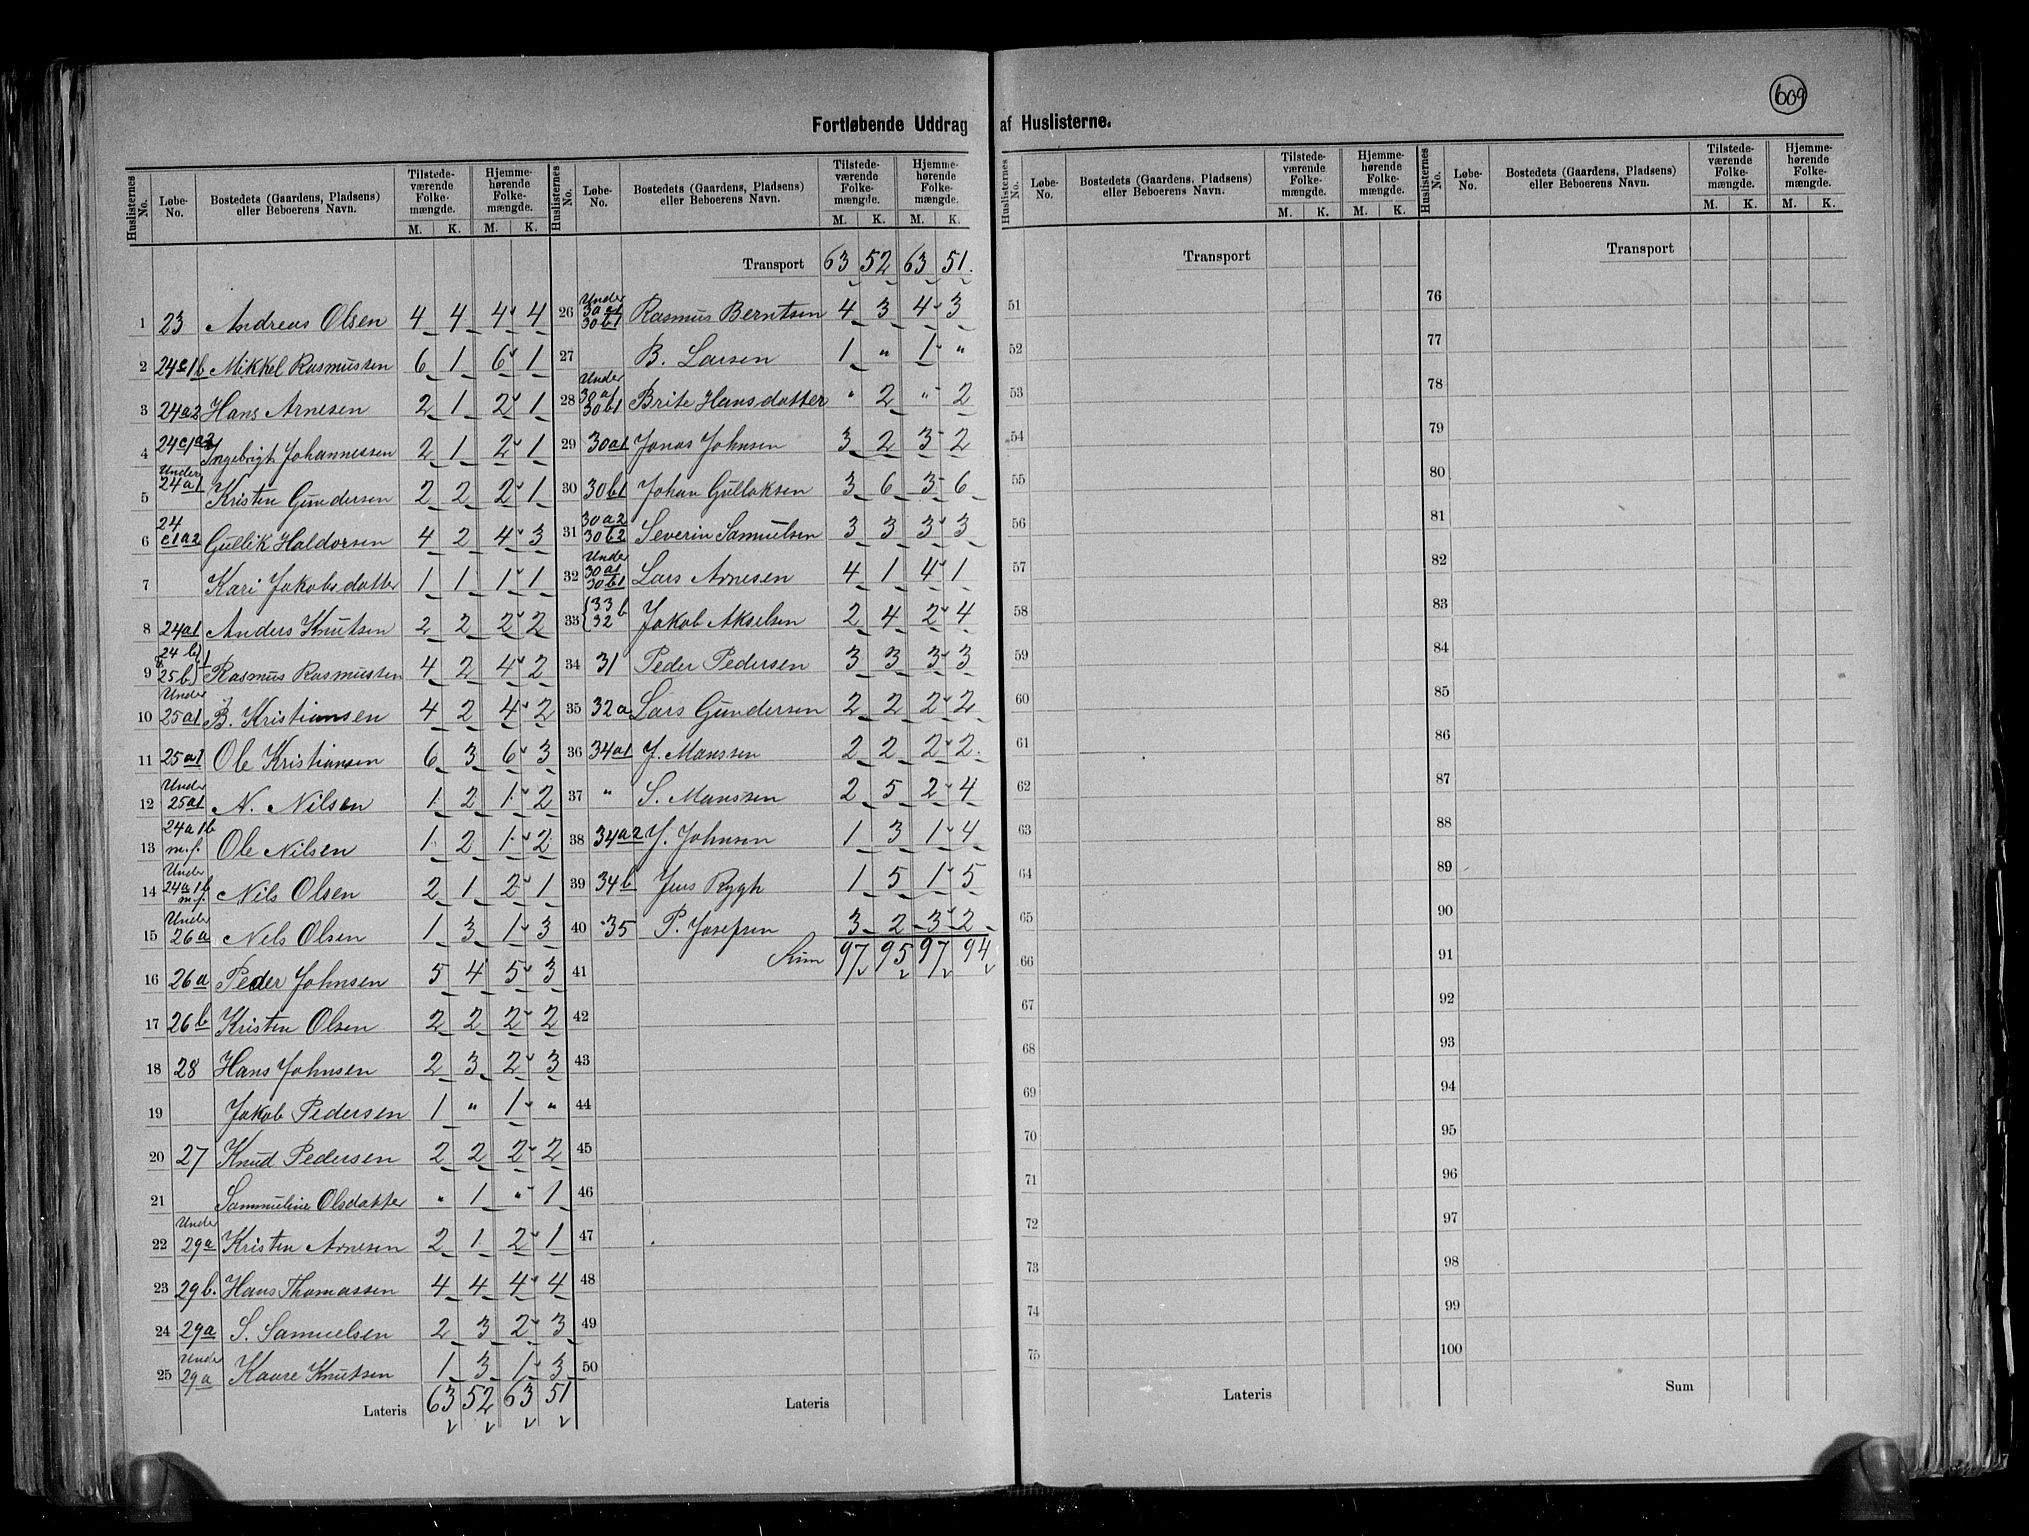 609
Fortløbende Uddrag af Huslisterne.
Huslisternes No. | Løbe-No. | Bostedets (Gaardens, Pladsens) eller Beboerens Navn. | Tilstedeværende Folkemængde. M. K. | Hjemmehørende Folkemængde. M. K.
1 23 Andreas Olsen 4 4 4 4
2 24c1b Mikkel Rasmussen 6 1 6 1
3 24a2 Hans Arnesen 2 1 2 1
4 24c1a2 Ingebrigt Johannessen 2 1 2 1
5 Under 24a1 Kristen Gundersen 2 2 2 1
6 24 c1a2 Gullik Haldorsen 4 2 4 3
7 Kari Jakobsdatter 1 1 1 1
8 24a1 Anders Knutsen 2 2 2 2
9 24 b) 25 b) 1 Rasmus Rasmussen 4 2 4 2
10 Under 25a1 B. Kristiansen 4 2 4 2
11 25a1 Ole Kristiansen 6 3 6 3
12 Under 25a1 N. Nilsen 1 2 1 2
13 24a1b m.f. Ole Nilsen 1 2 1 2
14 Under 24a1b m.f. Nils Olsen 2 1 2 1
15 Under 26a Nels Olsen 1 3 1 3
16 26a Peder Johnsen 5 4 5 3
17 26b Kristen Olsen 2 2 2 2
18 28 Hans Johnsen 2 3 2 3
19 Jakob Pedersen 1 " 1 "
20 27 Knud Pedersen 2 2 2 2
21 Sammueline Olsdatter " 1 " 1
22 Under 29a Kristen Arnesen 2 1 2 1
23 29b. Hans Thomassen 4 4 4 4
24 29a S. Samuelsen 2 3 2 3
25 Under 29a Kaare Knutsen 1 3 1 3
Lateris 63 52 63 51
Huslisternes No. | Løbe-No. | Bostedets (Gaardens, Pladsens) eller Beboerens Navn. | Tilstedeværende Folkemængde. M. K. | Hjemmehørende Folkemængde. M. K.
Transport 63 52 63 51.
26 Under 30a1 30b1 Rasmus Berntsen 4 3 4 3
27 B. Larsen 1 " 1 "
28 Under 30a1 30b1 Brite Hansdatter " 2 " 2
29 30a1 Jonas Johnsen 3 2 3 2
30 30b1 Johan Gullaksen 3 6 3 6
31 30a2 30b2 Severin Samuelsen 3 3 3 3
32 Under 30a1 30b1 Lars Arnesen 4 1 4 1
33 {33b 32 Jakob Akselsen 2 4 2 4
34 31 Peder Pedersen 3 3 3 3
35 32a Lars Gundersen 2 2 2 2
36 34a1 J. Manssen 2 2 2 2.
37 " S. Manssen 2 5 2 4
38 34a2 J. Johnsen 1 3 1 4
39 34b Jens Rygh 1 5 1 5
40 35 P. Josefsen 3 2 3 2
Sum 97 95 97 94
41
42
43
44
45
46
47
48
49
50
Lateris
Huslisternes No. | Løbe-No. | Bostedets (Gaardens, Pladsens) eller Beboerens Navn. | Tilstedeværende Folkemængde. M. K. | Hjemmehørende Folkemængde. M. K.
Transport
51
52
53
54
55
56
57
58
59
60
61
62
63
64
65
66
67
68
69
70
71
72
73
74
75
Lateris
Huslisternes No. | Løbe-No. | Bostedets (Gaardens, Pladsens) eller Beboerens Navn. | Tilstedeværende Folkemængde. M. K. | Hjemmehørende Folkemængde. M. K.
Transport
76
77
78
79
80
81
82
83
84
85
86
87
88
89
90
91
92
93
94
95
96
97
98
99
100
Sum